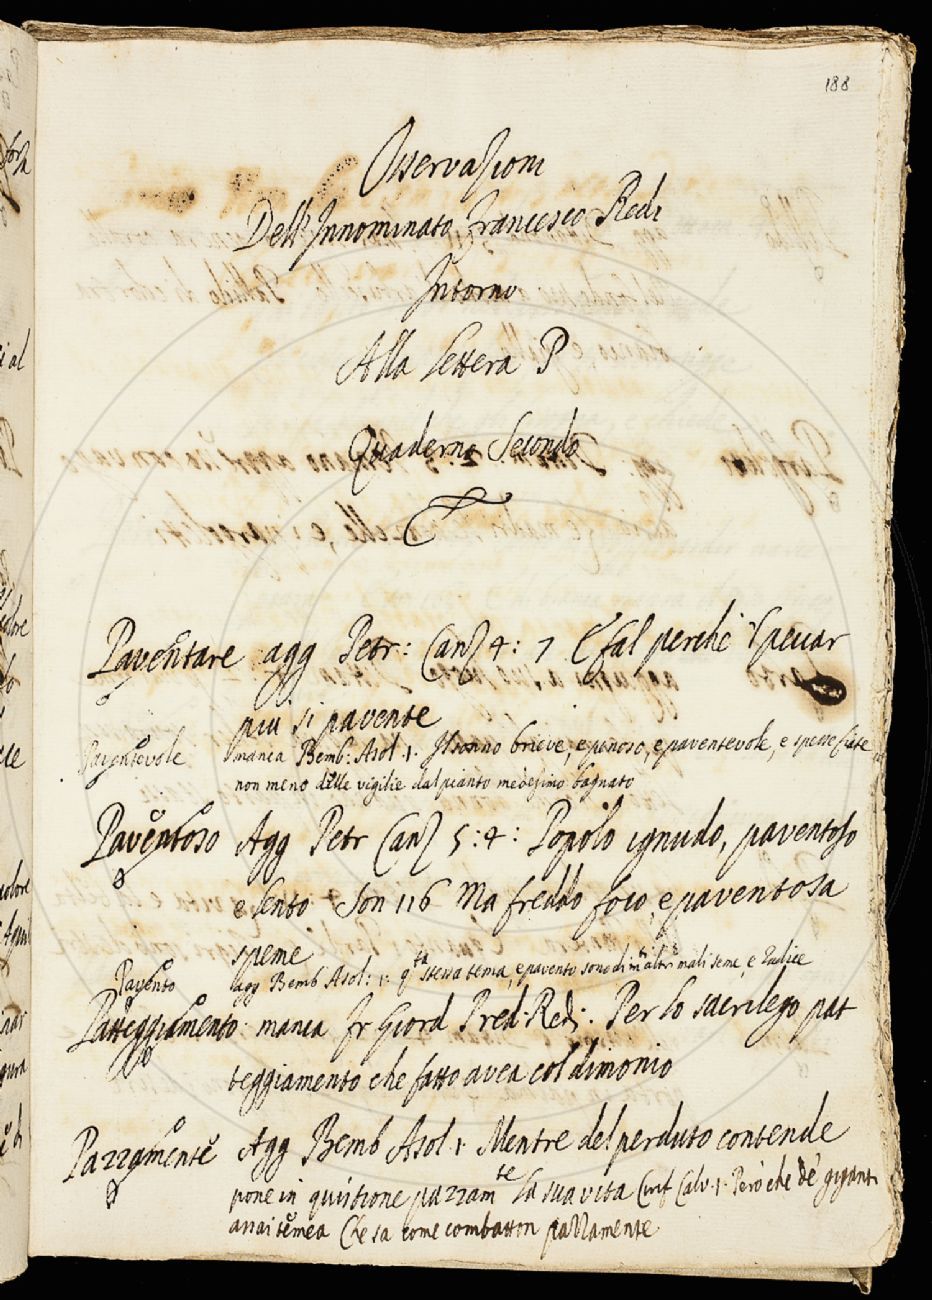 188
Osservazioni
Dell' Innominato Francesco Redi
Intorno
Alla Lettera P
Quaderno Secondo
Paventare agg Petr: Canz 4: 7 E fal perchè 'l penar
piu si pavente
Paventevole manca Bemb. Asol. 1. Il sonno brieve, e penoso, e paventevole, e spesse fiate
non meno delle vigilie dal pianto medesimo bagnato
Paventoso Agg Petr Canz 5: 4: Popolo ignudo, paventoso
e lento Son 116 Ma freddo foco, e paventosa
speme
Pavento agg Bemb Asol: 1: q.ta stessa tema, e pavento sono di mltri mali seme, e radice
Patteggiamento: manca Fr Giord Pred. Red: Per lo sacrilego pat
teggiamento che fatto avea col dimonio
Pazzamente Agg Bemb Asol 1 Mentre del perduto contende
pone in quistione pazzam.te la sua vita Calv. 1. Però che de' giganti
assai temea Che sa come combatton pazzamente